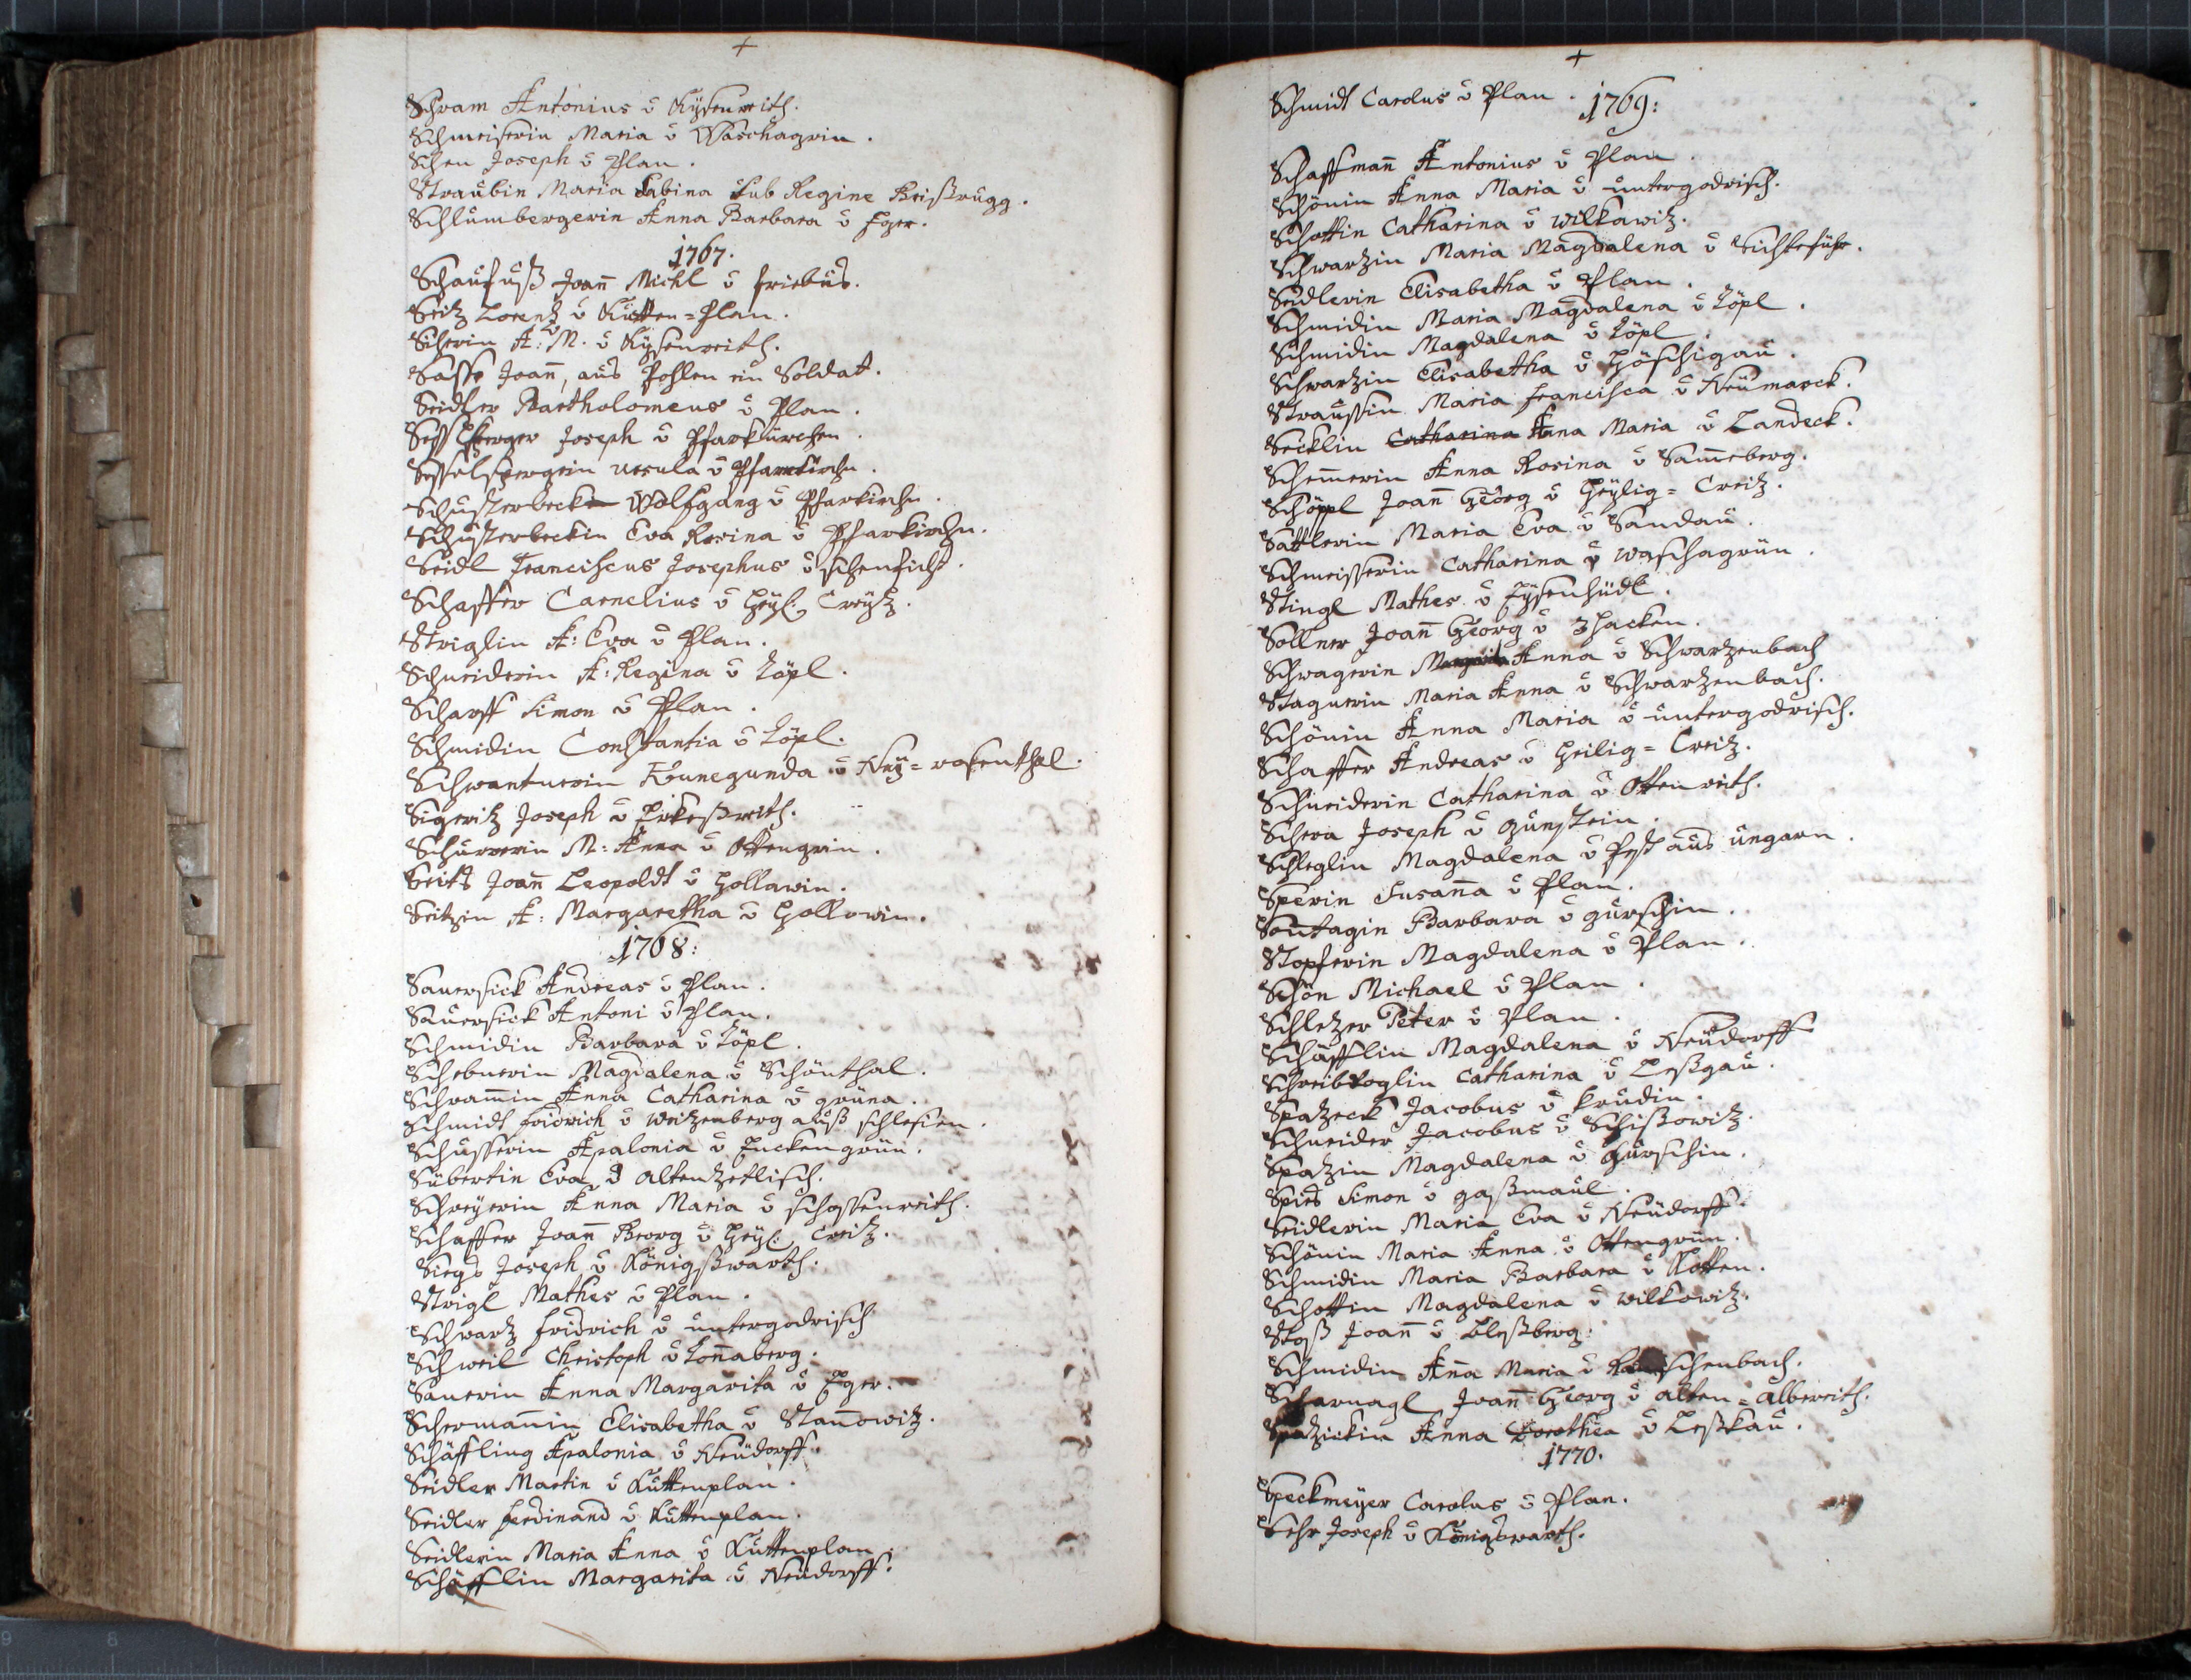 +
Schram Antonius v̄ Kÿsenreith.
Schmeiserin Maria v̄ Waschagrin.
Schen Joseph v̄ Plan.
Straubin Maria Sabina sub Regine
Schlumbergerin Anna Barbara v̄ Eger.
1767.
Schaufuß Joan̄ Michl v̄ Friebus.
Seitz Lorentz v̄ Kutten=Plan.
A: M. v̄ Kÿsenreith.
Sasse Joan̄, aus Pohlen ein Soldat.
Seidler Bartholomeus v̄ Plan.
Joseph v̄ Pfarkürchen.
Sesselspergerin Ursula v̄ Pfarrkirchn.
Schusterbeck Wolfgang v̄ Pfarkirchn.
Schusterbeckin Eva Rosina v̄ Pfarkirchn.
Seidl Franciscus Josephus v̄
Schaffer Carnelius v̄ Heÿl: Creÿtz.
Striglin A: Eva v̄ Plan.
Schneiderin A: Regina v̄ Töpl.
Scharff Simon v̄ Plan.
Schmidin Constantia v̄ Töpl.
Schwanturin Kunegunda v̄ Neÿ=rosenthal.
Sigeritz Joseph v̄ Pirkeßreith.
Schurrerin M: Anna v̄ Ottengrin.
Seits Joan̄ Leopoldt v̄ Gollawin.
Seitzin A: Margaretha v̄ Gollowin.
1768:
Sauersick Andreas v̄ Plan.
Sauersick Antoni v̄ Plan.
Schmidin Barbara v̄ Töpl.
Schebnerin Magdalena v̄ Schönthal.
Schram̄in Anna Catharina v̄ grüna.
Schmidt Fridrich v̄ Weitzenberg auß schlesien.
Schusserin Apalonia v̄ Zuckengrün.
Sübertin Eva v̄ altenzetlisch.
Schreÿerin Anna Maria v̄ schossenreith.
Schaffer Joan̄ Georg v̄ Heÿl: Creitz.
Siegs Joseph v̄ Königßwarth.
Strigl Mathes v̄ Plan.
Schwartz Fridrich v̄ untergodrisch
Schweil Christoph v̄ Ton̄aberg.
Sauerin Anna Margarita v̄ Eger.
Scherman̄in Elisabetha v̄ Stan̄owitz.
Schäffling Apalonia v̄ Neüdorff.
Seidler Martin v̄ Kuttenplan.
Seidler Ferdinand v̄ Kuttenplan.
Seidlerin Maria Anna v̄ Kuttenplan.
Schäfflin Margarita v̄ Neüdorff.
+
Schmidt Carolus v̄ Plan.
1769:
Schaffman̄ Antonius v̄ Plan.
Schönin Anna Maria v̄ untergodrisch.
Schottin Catharina v̄ wilkawitz.
Schwartzin Maria Magdalena v̄ Sichteführ.
Seidlerin Elisabetha v̄ Plan.
Schmidin Maria Magdalena v̄ Töpl.
Schmidin Magdalena v̄ Töpl.
Schwartzin Elisabetha v̄ Göschigau.
Straussin Maria Francisca v̄ Neümarck.
Secklin Catharina Anna Maria v̄ Landeck.
Schem̄erin Anna Rosina v̄ Sam̄eberg.
Schöppl Joan̄ Georg v̄ Heÿlig=Creitz.
Sattlerin Maria Eva v̄ Sandau.
Schmeisserin Catharina v̄ waschagrün.
Stingl Mathes v̄ Eÿsenhüdl.
Sollner Joan̄ Georg v̄ 3hacken.
Schwagerin Margarita Anna v̄ Schwartzenbach
Stagnerin Maria Anna v̄ Schwartzenbach.
Schönin Anna Maria v̄ untergodrisch.
Schaffer Andreas v̄ Heilig=Creitz.
Schneiderin Catharina v̄ Ottenreith.
Schera Joseph v̄ gumstein.
Schleglin Magdalena v̄ Pest aus ungarn.
Sperin Susan̄a v̄ Plan.
Son̄tagin Barbara v̄ gurschin.
Stopferin Magdalena v̄ Plan.
Schön Michael v̄ Plan.
Schletzer Peter v̄ Plan.
Schäfflin Magdalena v̄ Neüdorff
Schreibvoglin Catharina v̄ Leßgau.
Spatzeck Jacobus v̄ krudin.
Schneider Jacobus v̄ Schißowitz.
Spatzin Magdalena v̄ gurschin.
Spies Simon v̄ gaßmaul.
Seidlerin Maria Eva v̄ Neüdorff.
Schönin Maria Anna v̄ Ottengrün.
Schmidin Maria Barbara v̄ Kotten.
Schottin Magdalena v̄ wilkowitz.
Stoß Joan̄ v̄ Bleßberg.
Schmidin An̄a Maria v̄
Scharnagl Joan̄ Georg v̄ alten=albereith.
Spatzickin Anna Dorothea v̄ Leßkau.
1770.
Speckmeÿer Carolus v̄ Plan.
Sehr Joseph v̄ Königswarth.